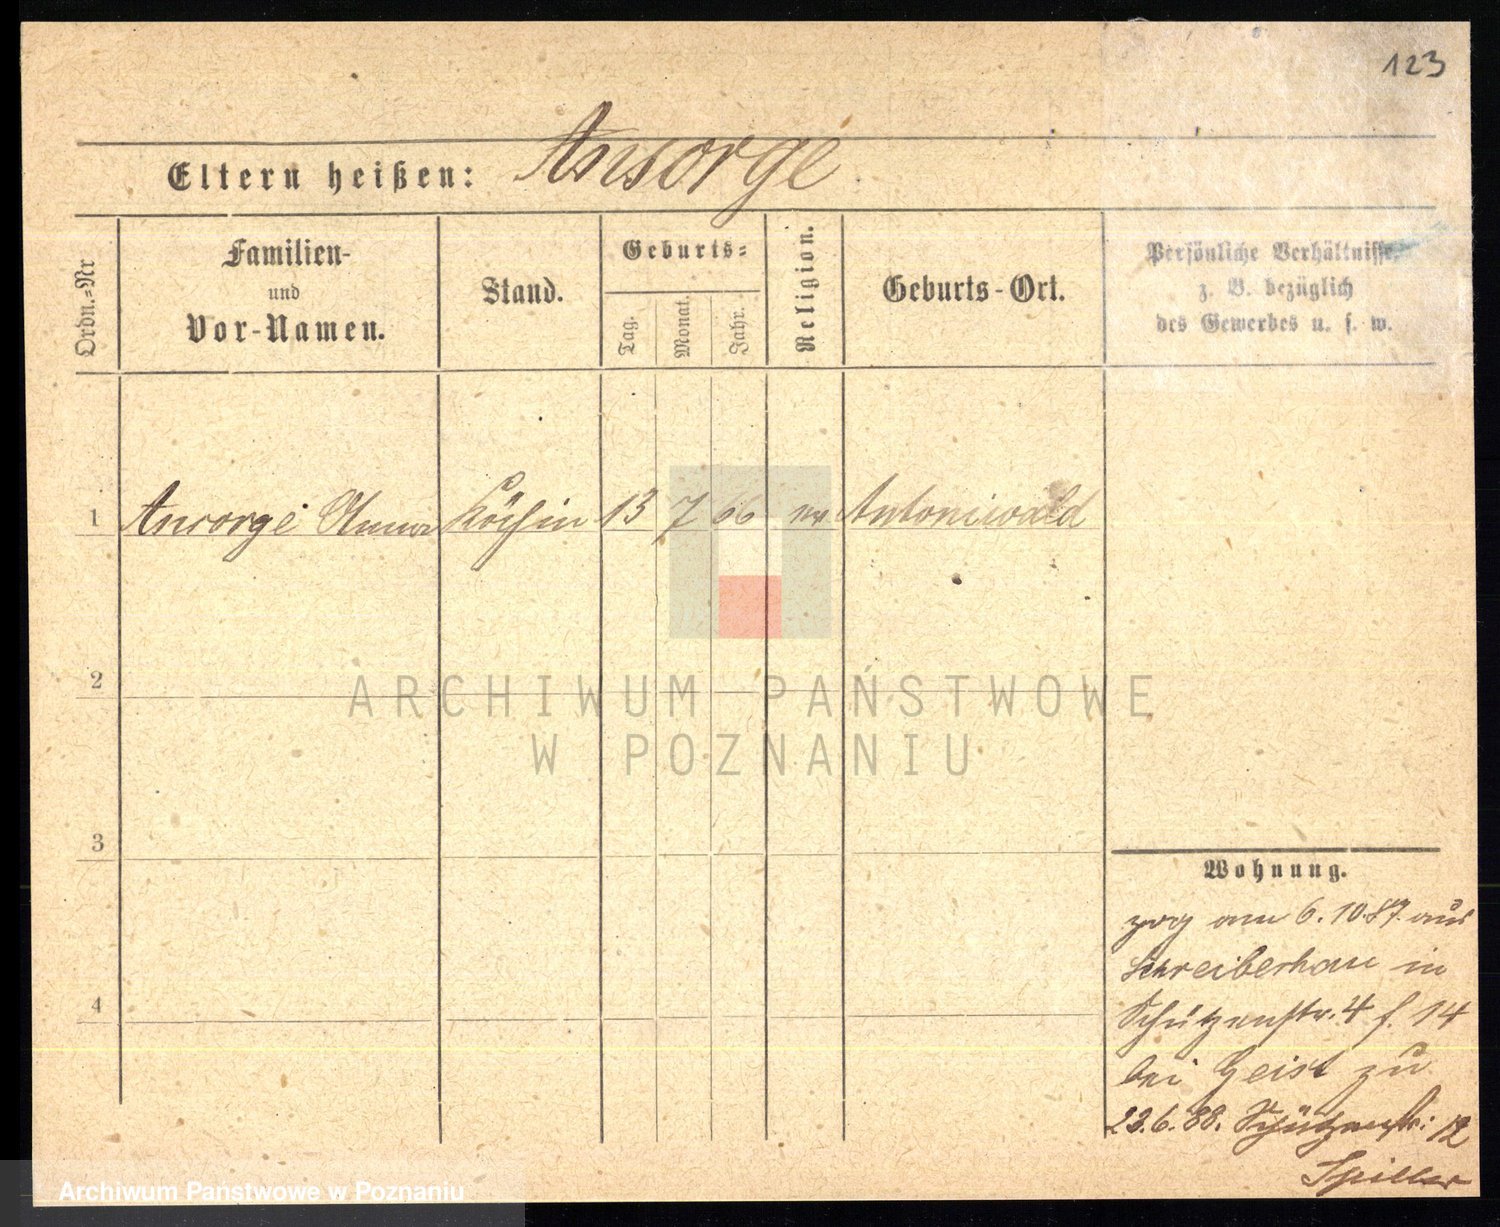 123
Eltern heißen: Ansorge
Ordn.-Nr
Familien-
und
Vor-Namen.
Stand.
Geburts-
Tag.
Monat.
Jahr.
Religion.
Geburts-Ort.
Persönliche Verhältnisse
z. B. bezüglich
des Gewerbes u. s. w.
1 Ansorge Anna Köchin 13 7 66 ev Antoniwald
2
ARCHIWUM PAŃSTWOWE
W POZNANIU
3
4
Wohnung.
zog am 6.10.87. aus
Schreiberhau in
Schützenstr. 4 f. 14
bei Geist zu
23.6.88. Schützenstr: 12
Spiller
Archiwum Państwowe w Poznaniu